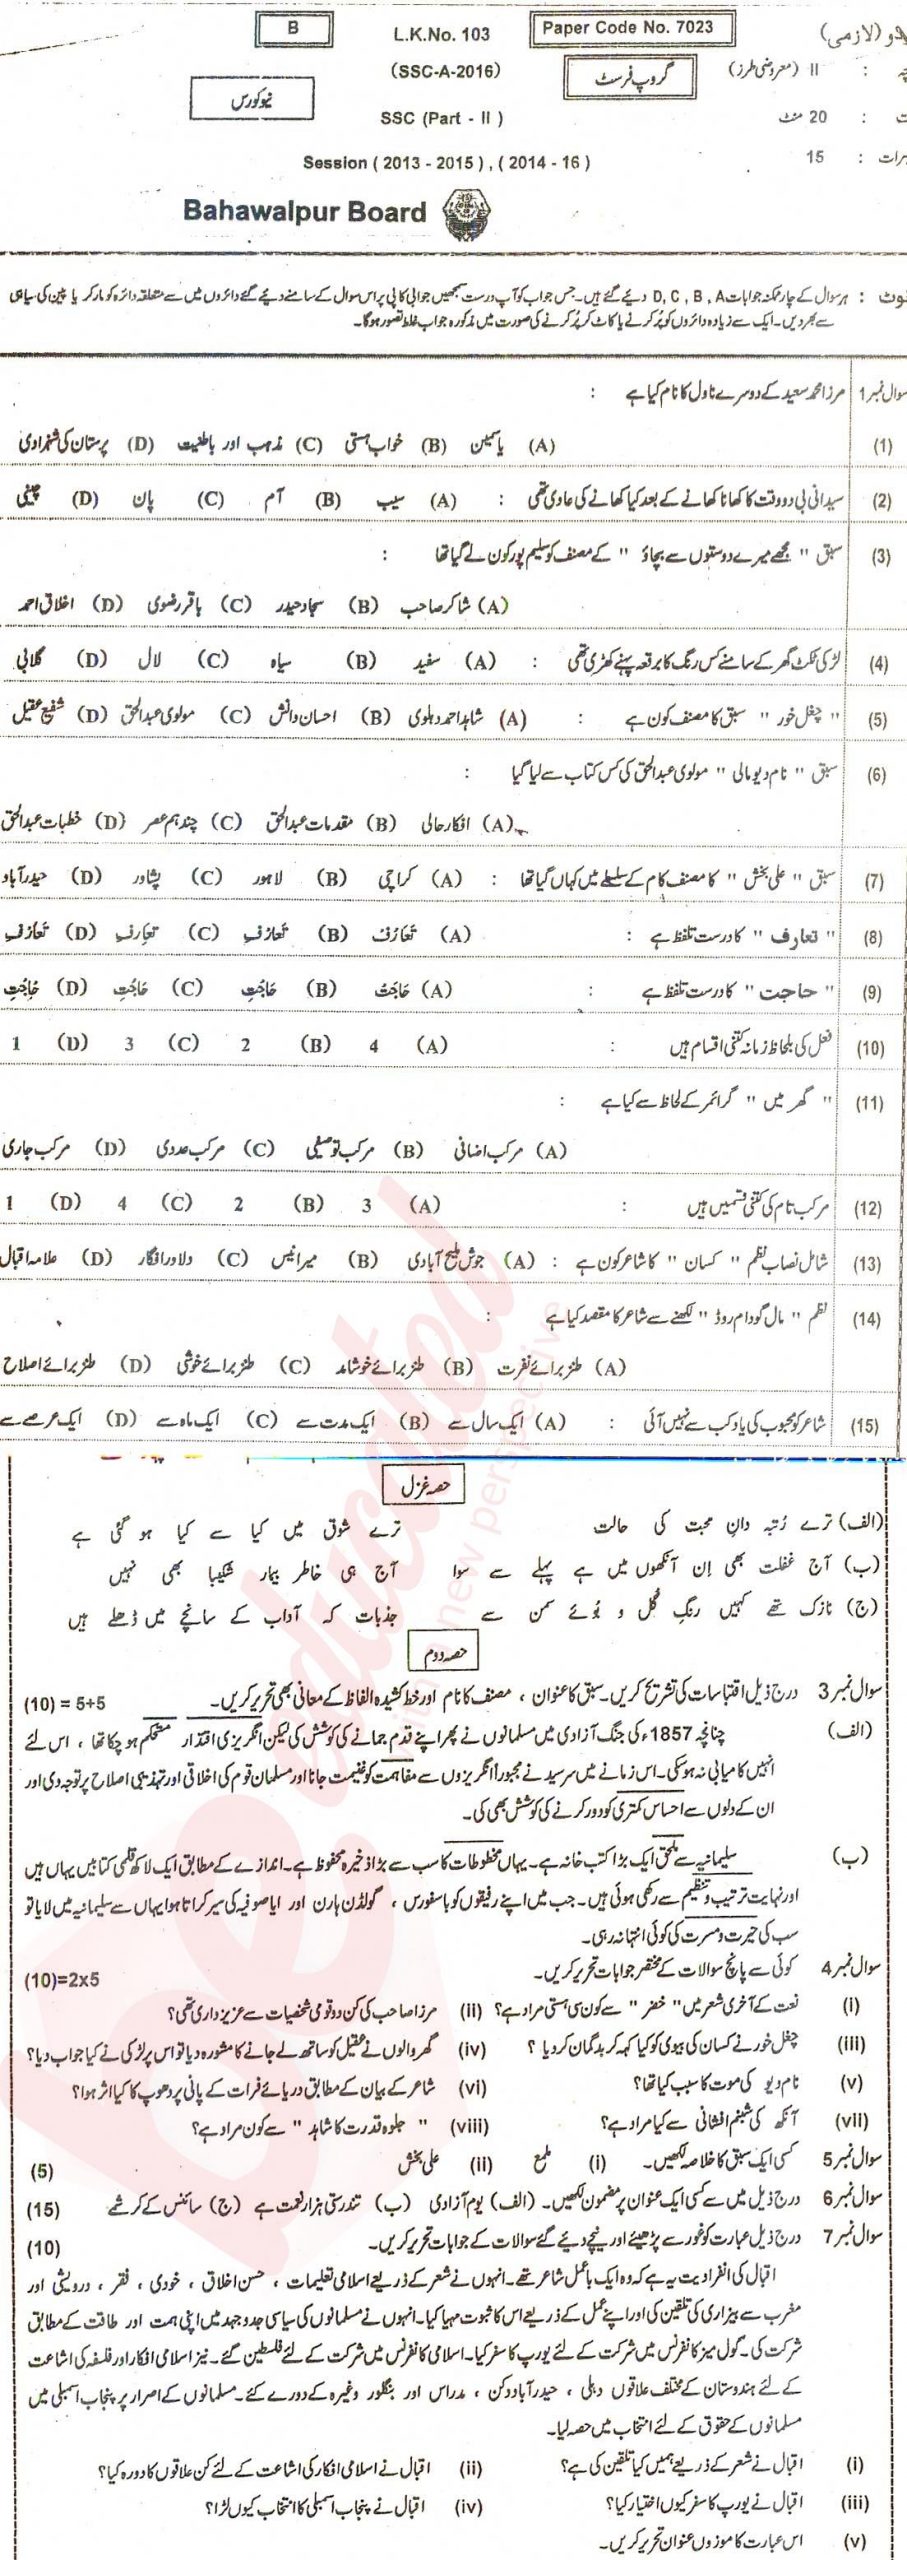 B L.K.No. 103 Paper Code No. 7023 (لازمی)
(SSC-A-2016) گروپ فرسٹ : II (معروضی طرز)
نیو کورس SSC (Part - II ) : 20 منٹ
Session ( 2013 - 2015) , ( 2014 - 16 ) : 15
Bahawalpur Board
نوٹ : ہر سوال کے چار ممکنہ جوابات D, C , B , A دیئے گئے ہیں۔ جس جواب کو آپ درست سمجھیں جوابی کاپی پر اس سوال کے سامنے دیئے گئے دائروں میں سے متعلقہ دائرہ کو مارکر یا پین کی سیاہی
سے بھر دیں۔ ایک سے زیادہ دائروں کو پُر کرنے یا کاٹ کر پُر کرنے کی صورت میں مذکورہ جواب غلط تصور ہوگا۔
سوال نمبر 1 مرزا محمد سعید کے دوسرے ناول کا نام کیا ہے :
(1) (A) یاسمین (B) خواب ہستی (C) مذہب اور باطنیت (D) پرستان کی شہزادی
(2) سیدانی بی دو وقت کا کھانا کھانے کے بعد کیا کھانے کی عادی تھی : (A) سیب (B) آم (C) پان (D) چینی
(3) سبق " مجھے میرے دوستوں سے بچاؤ " کے مصنف کو سلیم پور کون لے گیا تھا :
(A) شاکر صاحب (B) سجاد حیدر (C) باقر رضوی (D) اخلاق احمد
(4) لڑکی ٹکٹ گھر کے سامنے کس رنگ کا برقعہ پہنے کھڑی تھی : (A) سفید (B) سیاہ (C) لال (D) گلابی
(5) " چغل خور " سبق کا مصنف کون ہے : (A) شاہد احمد دہلوی (B) احسان دانش (C) مولوی عبدالحق (D) شفیع عقیل
(6) سبق " نام دیو مالی " مولوی عبدالحق کی کس کتاب سے لیا گیا :
(A) افکار حالی (B) مقدمات عبدالحق (C) چند ہم عصر (D) خطبات عبدالحق
(7) سبق " علی بخش " کا مصنف کام کے سلسلے میں کہاں گیا تھا : (A) کراچی (B) لاہور (C) پشاور (D) حیدر آباد
(8) " تعارف " کا درست تلفظ ہے : (A) (B) (C) (D)
(9) " حاجت " کا درست تلفظ ہے : (A) (B) (C) (D)
(10) فعل کی بلحاظ زمانہ کتنی اقسام ہیں : (A) 4 (B) 2 (C) 3 (D) 1
(11) " گھر میں " گرائمر کے لحاظ سے کیا ہے :
(A) مرکب اضافی (B) مرکب توصیفی (C) مرکب عددی (D) مرکب جاری
(12) مرکب تام کی کتنی قسمیں ہیں : (A) 3 (B) 2 (C) 4 (D) 1
(13) شامل نصاب نظم " کسان " کا شاعر کون ہے : (A) جوش ملیح آبادی (B) میر انیس (C) دلاور افگار (D) علامہ اقبال
(14) نظم " مال گودام روڈ " لکھنے سے شاعر کا مقصد کیا ہے :
(A) طنز برائے نفرت (B) طنز برائے خوشامد (C) طنز برائے خوشی (D) طنز برائے اصلاح
(15) شاعر کو محبوب کی یاد کب سے نہیں آئی : (A) ایک سال سے (B) ایک مدت سے (C) ایک ماہ سے (D) ایک عرصے سے
حصہ غزل
(الف) ترے رُتبہ دانِ محبت کی حالت ترے شوق میں کیا سے کیا ہو گئی ہے
(ب) آج غفلت بھی اِن آنکھوں میں ہے پہلے سے سوا آج ہی خاطر بیمار شکیبا بھی نہیں
(ج) نازک تھے کہیں رنگِ گل و بُوئے سمن سے جذبات کہ آداب کے سانچے میں ڈھلے ہیں
حصہ دوم
سوال نمبر 3 درج ذیل اقتباسات کی تشریح کریں۔ سبق کا عنوان ، مصنف کا نام اور خط کشیدہ الفاظ کے معانی بھی تحریر کریں۔ (10) = 5+5
(الف) چنانچہ 1857ء کی جنگ آزادی میں مسلمانوں نے پھر اپنے قدم جمانے کی کوشش کی لیکن انگریزی اقتدار مستحکم ہو چکا تھا ، اس لئے
انہیں کامیابی نہ ہو سکی۔ اس زمانے میں سرسید نے مجبوراً انگریزوں سے مفاہمت کو غنیمت جانا اور مسلمان قوم کی اخلاقی اور تہذیبی اصلاح پر توجہ دی اور
ان کے دلوں سے احساس کمتری کو دور کرنے کی کوشش بھی کی۔
(ب) سلیمانیہ سے ملحق ایک بڑا کتب خانہ ہے۔ یہاں مخطوطات کا سب سے بڑا ذخیرہ محفوظ ہے۔ اندازے کے مطابق ایک لاکھ قلمی کتابیں یہاں ہیں
اور نہایت ترتیب و تنظیم سے رکھی ہوئی ہیں۔ جب میں اپنے رفیقوں کو باسفورس ، گولڈن ہارن اور ایاصوفیہ کی سیر کراتا ہوا یہاں سے سلیمانیہ میں لایا تو
سب کی حیرت و مسرت کی کوئی انتہا نہ رہی۔
سوال نمبر 4 کوئی سے پانچ سوالات کے مختصر جوابات تحریر کریں۔ (10)=2x5
(i) نعت کے آخری شعر میں " خضر " سے کون سی ہستی مراد ہے؟ (ii) مرزا صاحب کی کن دو قومی شخصیات سے عزیز داری تھی؟
(iii) چغل خور نے کسان کی بیوی کو کیا کہہ کر بدگمان کر دیا ؟ (iv) گھر والوں نے عقیل کو ساتھ لے جانے کا مشورہ دیا تو اس پر لڑکی نے کیا جواب دیا؟
(v) نام دیو کی موت کا سبب کیا تھا؟ (vi) شاعر کے بیان کے مطابق دریائے فرات کے پانی پر دھوپ کا کیا اثر ہوا؟
(vii) آنکھ کی شبنم افشانی سے کیا مراد ہے؟ (viii) " جلوہ قدرت کا شاہد " سے کون مراد ہے؟
سوال نمبر 5 کسی ایک سبق کا خلاصہ لکھیں۔ (i) ملمع (ii) علی بخش (5)
سوال نمبر 6 درج ذیل میں سے کسی ایک عنوان پر مضمون لکھیں۔ (الف) یوم آزادی (ب) تندرستی ہزار نعمت ہے (ج) سائنس کے کرشمے (15)
سوال نمبر 7 درج ذیل عبارت کو غور سے پڑھیئے اور نیچے دیئے گئے سوالات کے جوابات تحریر کریں۔ (10)
اقبال کی انفرادیت یہ ہے کہ وہ ایک باعمل شاعر تھے۔ انہوں نے شعر کے ذریعے اسلامی تعلیمات ، حسن اخلاق ، خودی ، فقر ، درویشی اور
مغرب سے بیزاری کی تلقین کی اور اپنے عمل کے ذریعے اس کا ثبوت مہیا کیا۔ انہوں نے مسلمانوں کی سیاسی جدوجہد میں اپنی ہمت اور طاقت کے مطابق
شرکت کی۔ گول میز کانفرنس میں شرکت کے لئے یورپ کا سفر کیا۔ اسلامی کانفرنس میں شرکت کے لئے فلسطین گئے۔ نیز اسلامی افکار اور فلسفہ کی اشاعت
کے لئے ہندوستان کے مختلف علاقوں دہلی ، حیدر آباد دکن ، مدراس اور بنگلور وغیرہ کے دورے کئے۔ مسلمانوں کے اصرار پر پنجاب اسمبلی میں
مسلمانوں کے حقوق کے لئے انتخاب میں حصہ لیا۔
(i) اقبال نے شعر کے ذریعے ہمیں کیا تلقین کی ہے؟ (ii) اقبال نے اسلامی افکار کی اشاعت کے لئے کن علاقوں کا دورہ کیا؟
(iii) اقبال نے یورپ کا سفر کیوں اختیار کیا؟ (iv) اقبال نے پنجاب اسمبلی کا انتخاب کیوں لڑا؟
(v) اس عبارت کا موزوں عنوان تحریر کریں۔